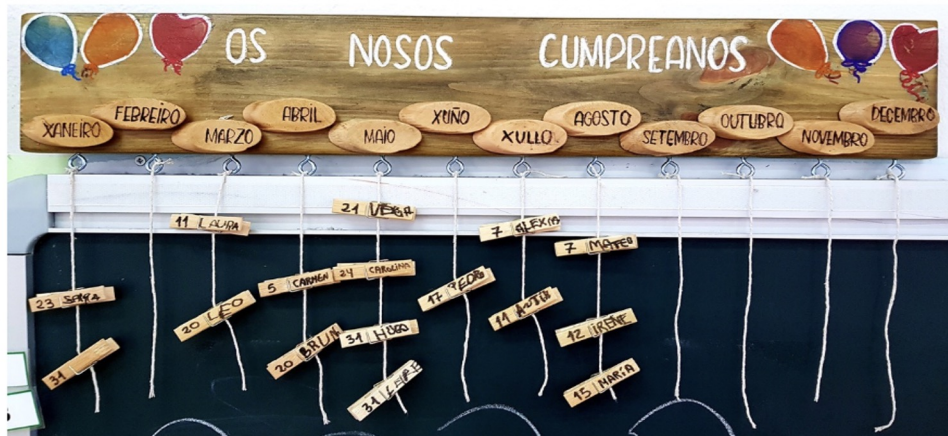 OS NOSOS CUMPREANOS
XANEIRO
FEBREIRO
MARZO
ABRIL
MAIO
XUÑO
XULLO
AGOSTO
SETEMBRO
OUTUBRO
NOVEMBRO
DECEMBRO
23
31
11 LAURA
20 LEO
5 CARMEN
20 BRUN
21
24 CAROLINA
31 HUGO
31 LEIRE
17 PEDRO
7 ALEXIA
11
7 MATEO
12 IRENE
15 MARÍA